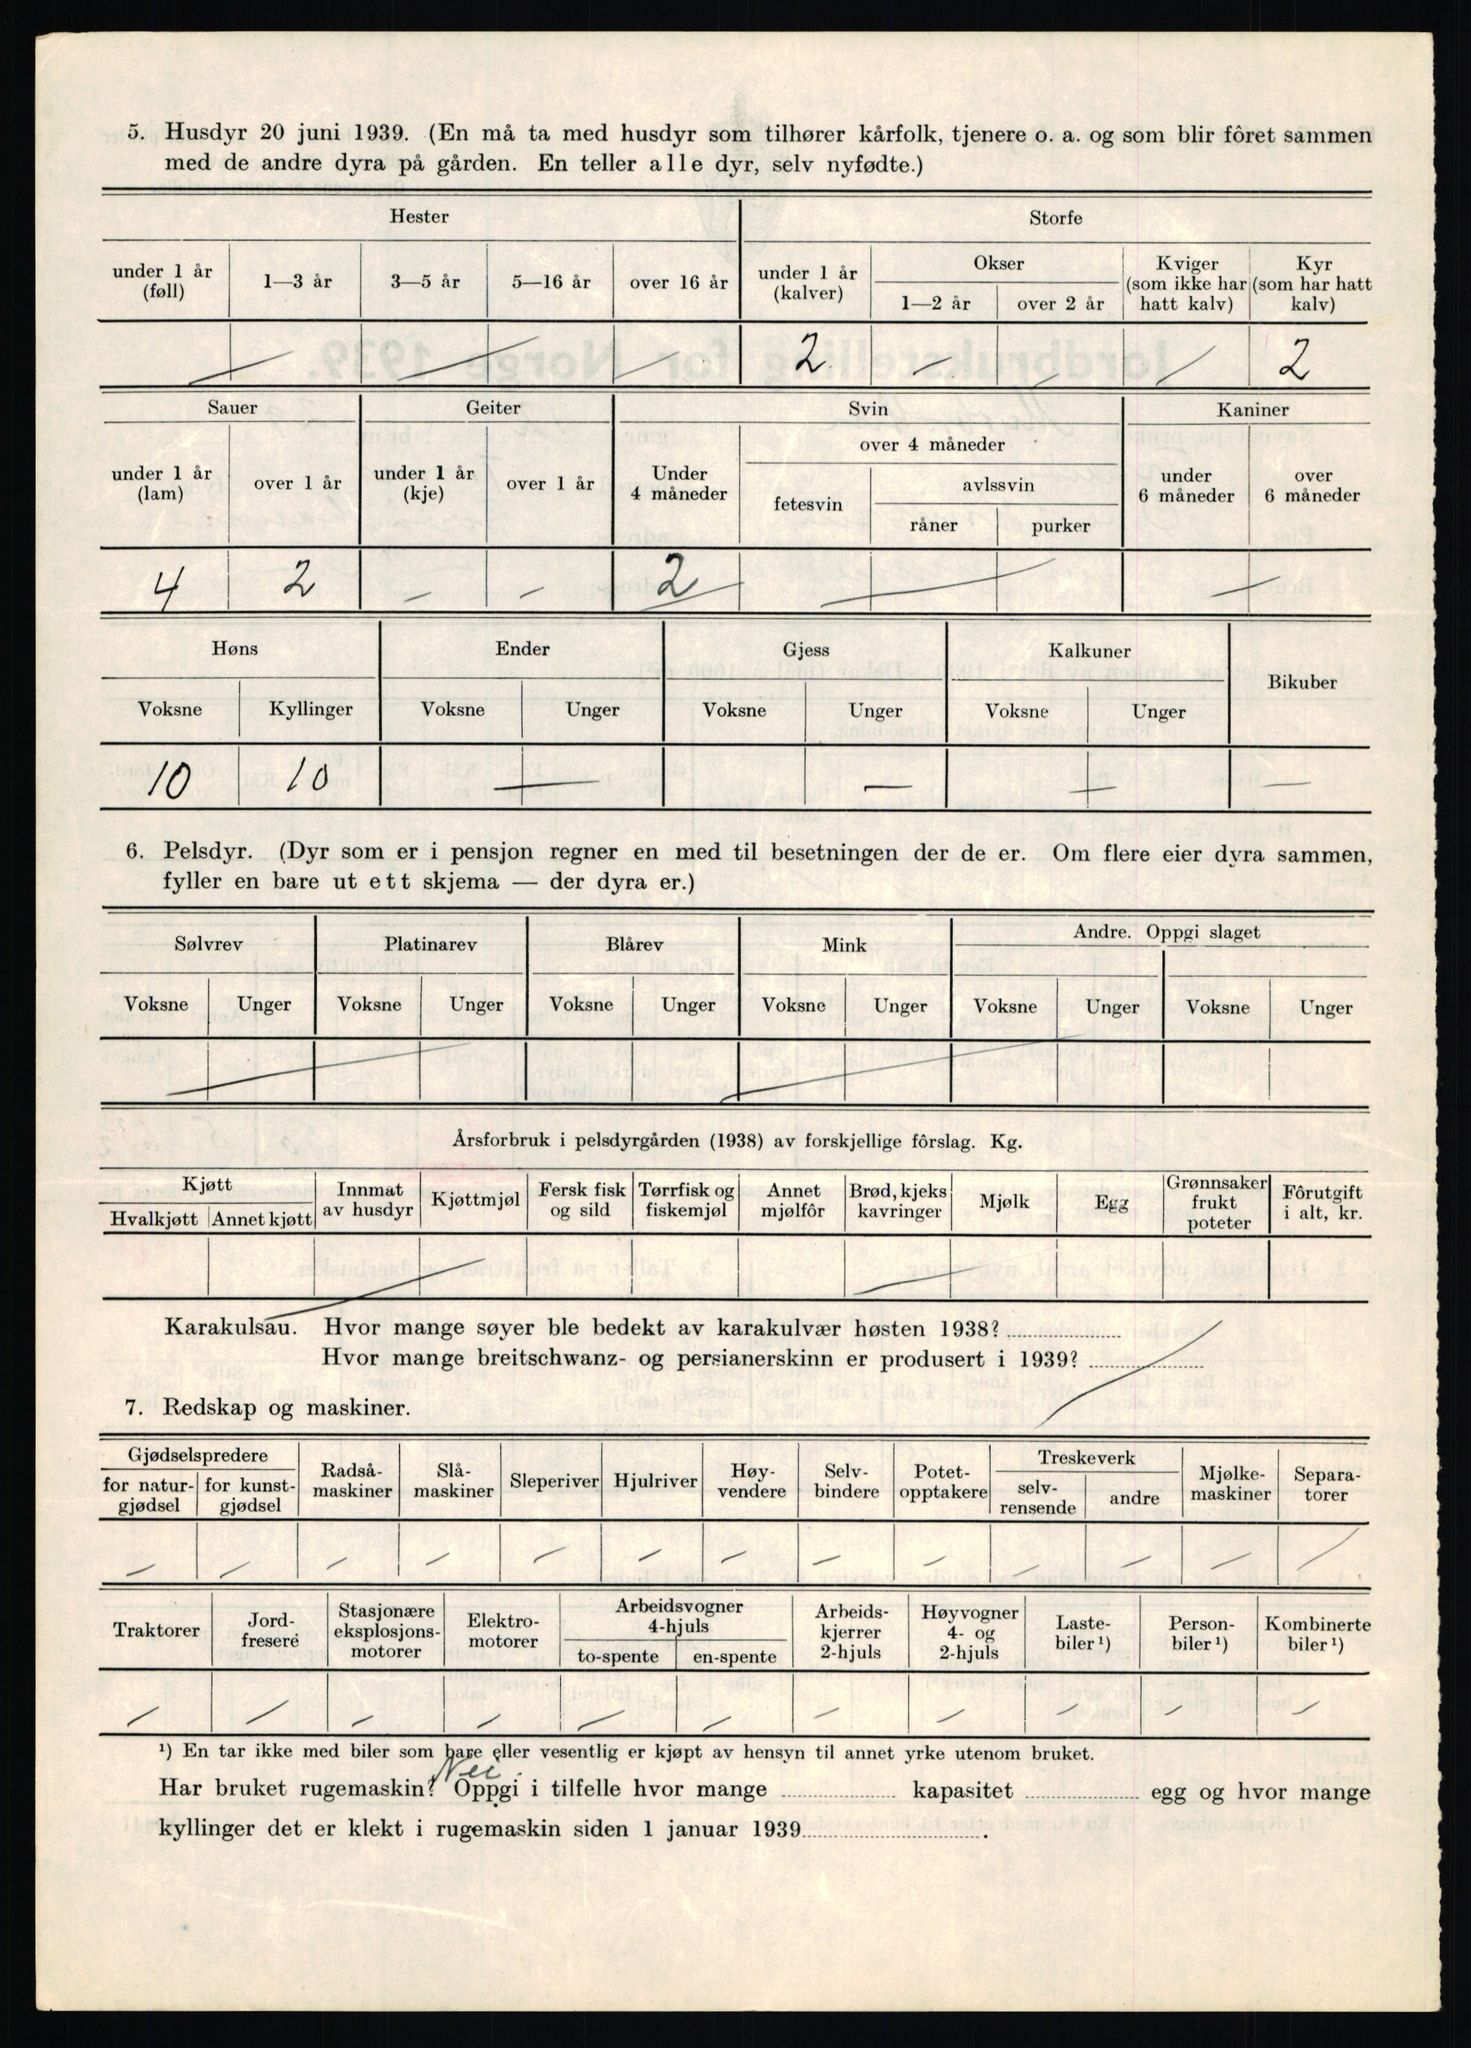 5. Husdyr 20 juni 1939. (En må ta med husdyr som tilhører kårfolk, tjenere o. a. og som blir fôret sammen
med de andre dyra på gården. En teller alle dyr, selv nyfødte.)
Hester Storfe
under 1 år (føll) 1—3 år 3—5 år 5—16 år over 16 år under 1 år (kalver) Okser 1—2 år over 2 år Kviger (som ikke har hatt kalv) Kyr (som har hatt kalv)
— — — 2 — — — 2
Sauer Geiter Svin Kaniner
over 4 måneder
under 1 år (lam) over 1 år under 1 år (kje) over 1 år Under 4 måneder fetesvin avlssvin råner purker under 6 måneder over 6 måneder
4 2 — — 2 — — —
Høns Ender Gjess Kalkuner Bikuber
Voksne Kyllinger Voksne Unger Voksne Unger Voksne Unger
10 10 — — — —
6. Pelsdyr. (Dyr som er i pensjon regner en med til besetningen der de er. Om flere eier dyra sammen,
fyller en bare ut ett skjema — der dyra er.)
Sølvrev Platinarev Blårev Mink Andre. Oppgi slaget
Voksne Unger Voksne Unger Voksne Unger Voksne Unger Voksne Unger Voksne Unger
— —
Årsforbruk i pelsdyrgården (1938) av forskjellige fôrslag. Kg.
Kjøtt Hvalkjøtt Annet kjøtt Innmat av husdyr Kjøttmjøl Fersk fisk og sild Tørrfisk og fiskemjøl Annet mjølfôr Brød, kjeks kavringer Mjølk Egg Grønnsaker frukt poteter Fôrutgift i alt, kr.
— —
Karakulsau. Hvor mange søyer ble bedekt av karakulvær høsten 1938?
Hvor mange breitschwanz- og persianerskinn er produsert i 1939? —
7. Redskap og maskiner.
Gjødselspredere for natur-gjødsel for kunst-gjødsel Radså-maskiner Slå-maskiner Sleperiver Hjulriver Høy-vendere Selv-bindere Potet-opptakere Treskeverk selv-rensende andre Mjølke-maskiner Separa-torer
— — — — — — — — — — — — —
Traktorer Jord-fresere Stasjonære eksplosjons-motorer Elektro-motorer Arbeidsvogner 4-hjuls to-spente en-spente Arbeids-kjerrer 2-hjuls Høyvogner 4- og 2-hjuls Laste-biler¹) Person-biler¹) Kombinerte biler¹)
— — — — — — — — — — —
¹) En tar ikke med biler som bare eller vesentlig er kjøpt av hensyn til annet yrke utenom bruket.
Nei
Har bruket rugemaskin? Oppgi i tilfelle hvor mange kapasitet egg og hvor mange
kyllinger det er klekt i rugemaskin siden 1 januar 1939.